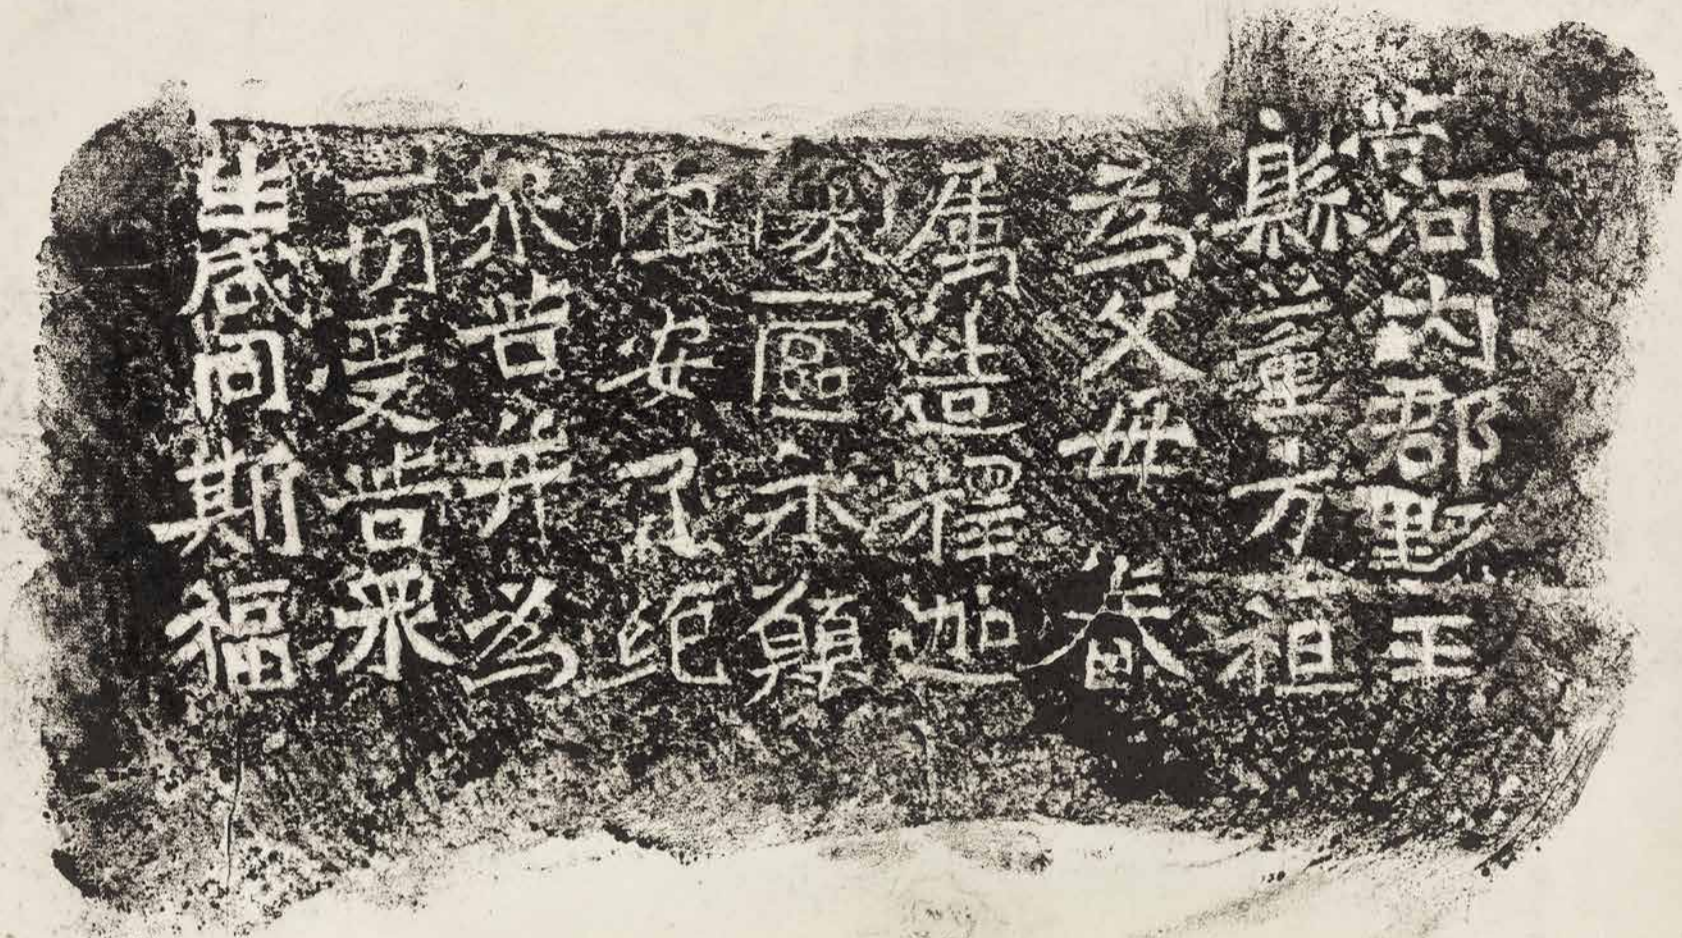 河内郡野王
縣董方祖
為父母眷
属造釋迦
像一區永願
安了絕
永苦并為
一切受苦眾
生咸同斯福